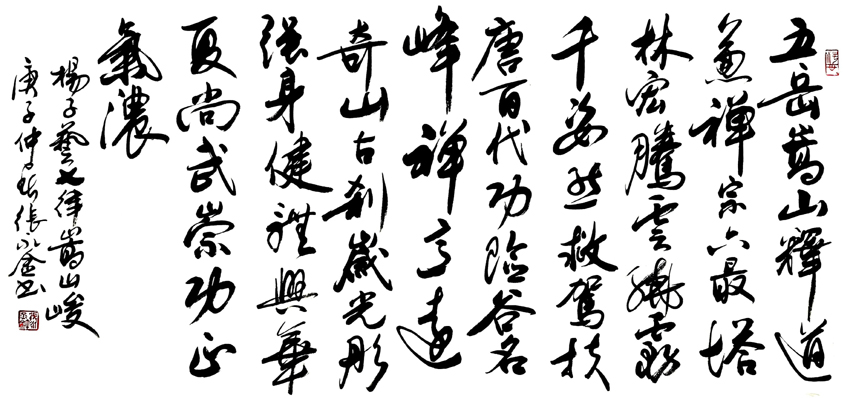 五岳嵩山釋道
兼禅宗六最塔
林宏騰雲繞霧
千姿态救駕扶
唐百代功险谷名
峰禅高遠
奇山古刹歲光彤
强身健體興華
夏尚武崇功正
氣濃
楊子藝七律嵩山峻
庚子仲春張金書